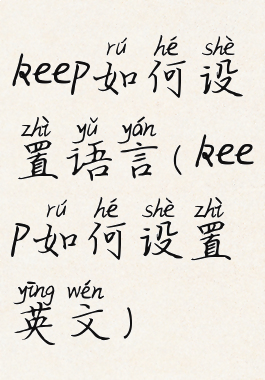 rú hé shè
keep如何设
zhì yǔ yán
置语言(kee
rú hé shè zhì
p如何设置
yīng wén
英文)